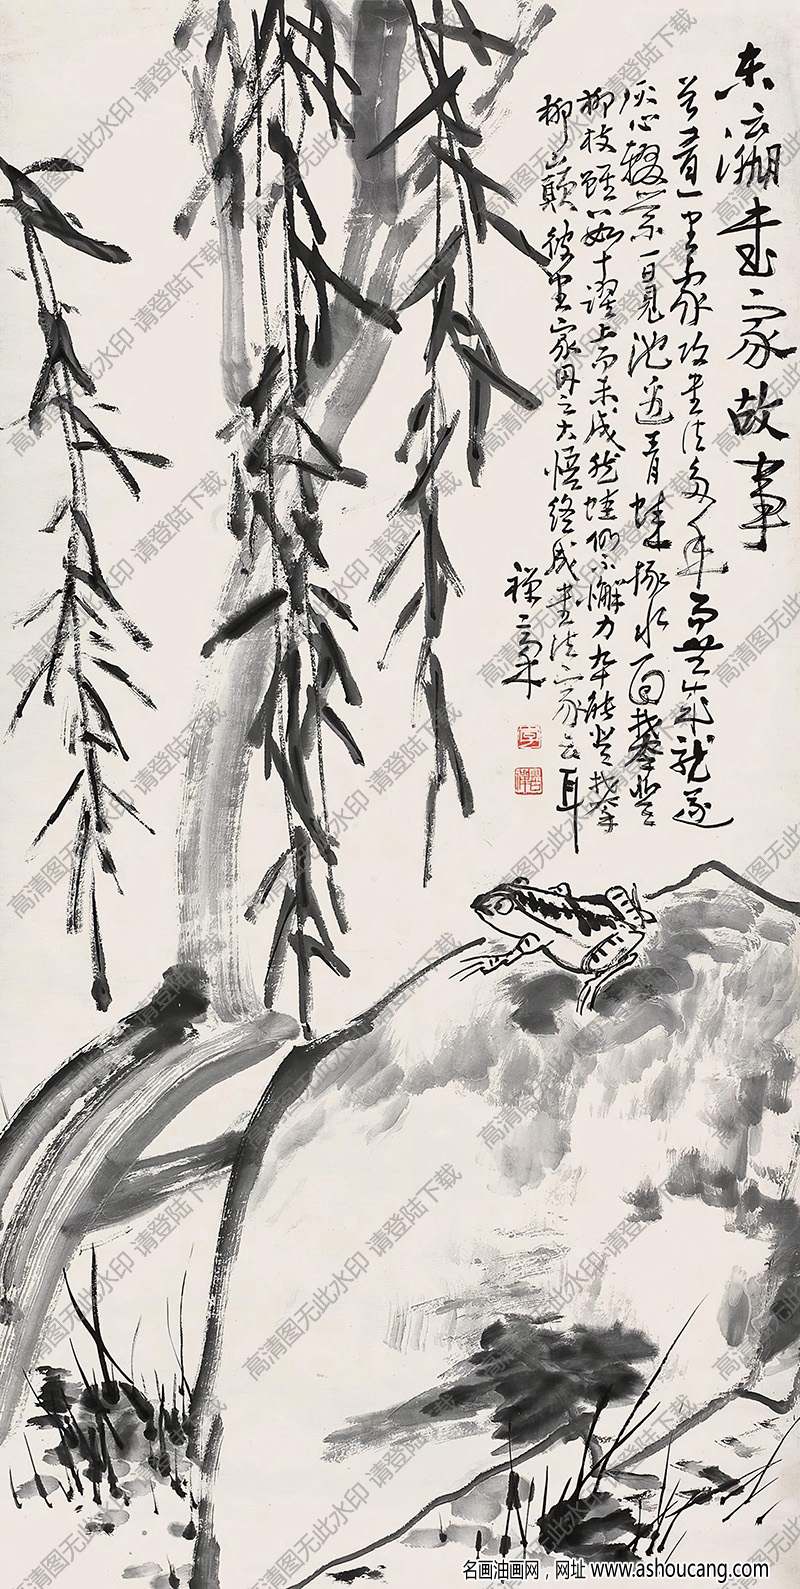 东瀛画家故事
昔有一画家攻画法多年而无成就遂
灰心辍业一日见池边青蛙掾水面攀登
柳枝虽八如十跃上而未成然蛙仍不懈力卒能登攀
柳之巅彼画家因之大悟终成画法家云耳
禅 
高清图无此水印 请登陆下载
名画油画网，网址 www.ashoucang.com